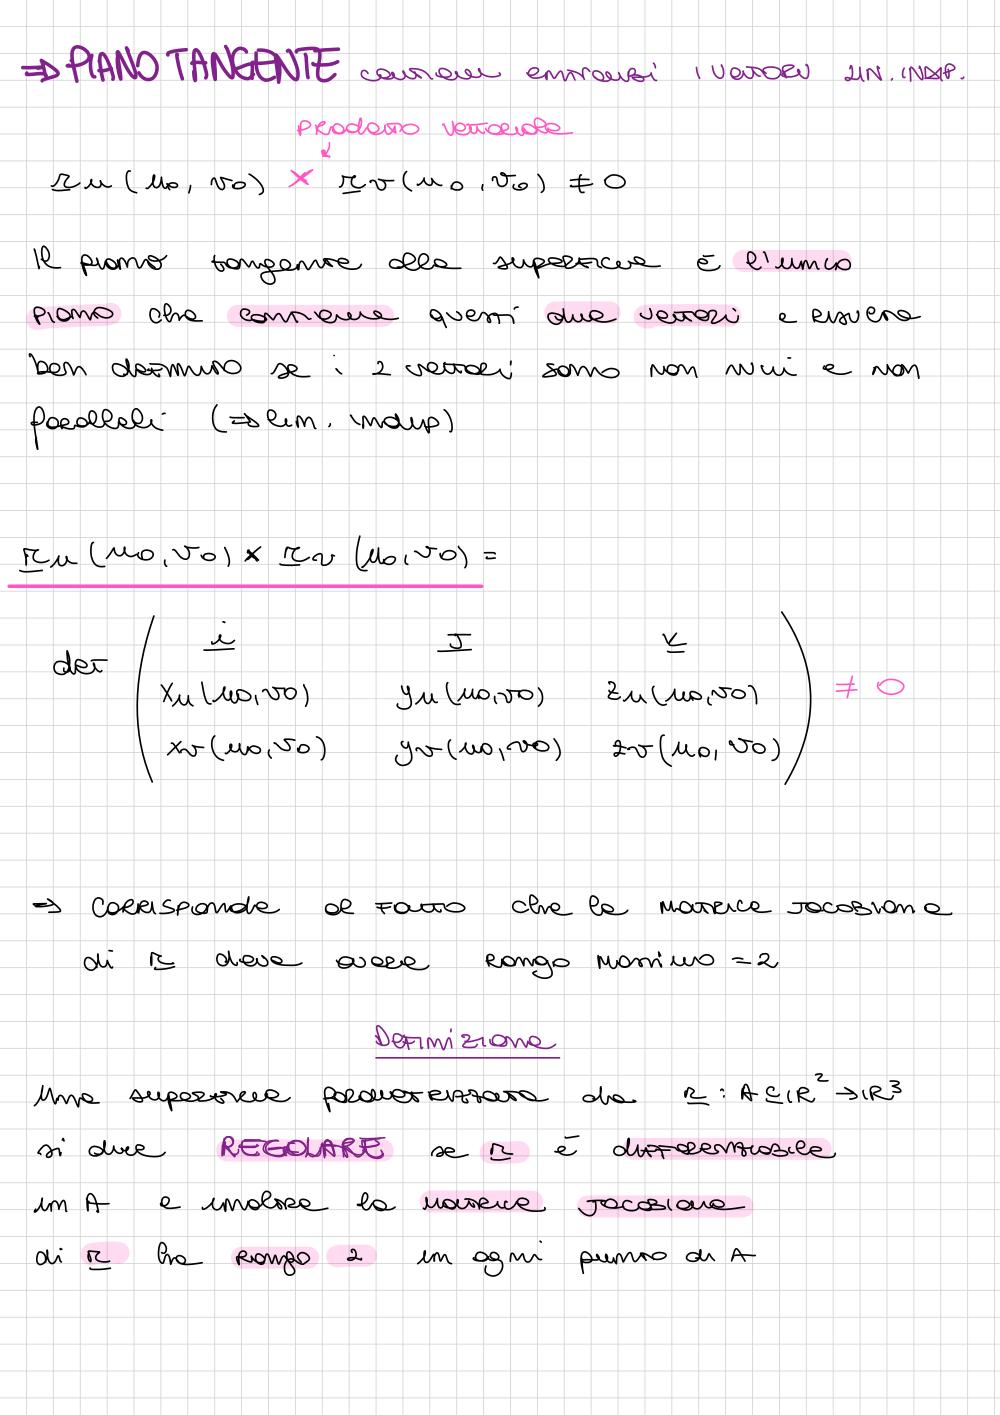 ⇒ PIANO TANGENTE contiene entrambi i vettori LIN. INDIP.
Prodotto vettoriale
r̲u (u0, v0) × r̲v (u0, v0) ≠ 0
Il piano tangente alla superficie è l'unico
piano che contiene questi due vettori e risulta
ben definito se i 2 vettori sono non nulli e non
paralleli (⇒ lin. indip)
r̲u (u0, v0) × r̲v (u0, v0) =
i̲ j̲ k̲
det ( xu (u0, v0) yu (u0, v0) zu (u0, v0) ) ≠ 0
xv (u0, v0) yv (u0, v0) zv (u0, v0)
⇒ corrisponde al fatto che la matrice Jacobiana
di r̲ deve avere rango massimo = 2
Definizione
Una superficie parametrizzata da r̲ : A ⊆ ℝ² → ℝ³
si dice REGOLARE se r̲ è differenziabile
in A e inoltre la matrice Jacobiana
di r̲ ha rango 2 in ogni punto di A